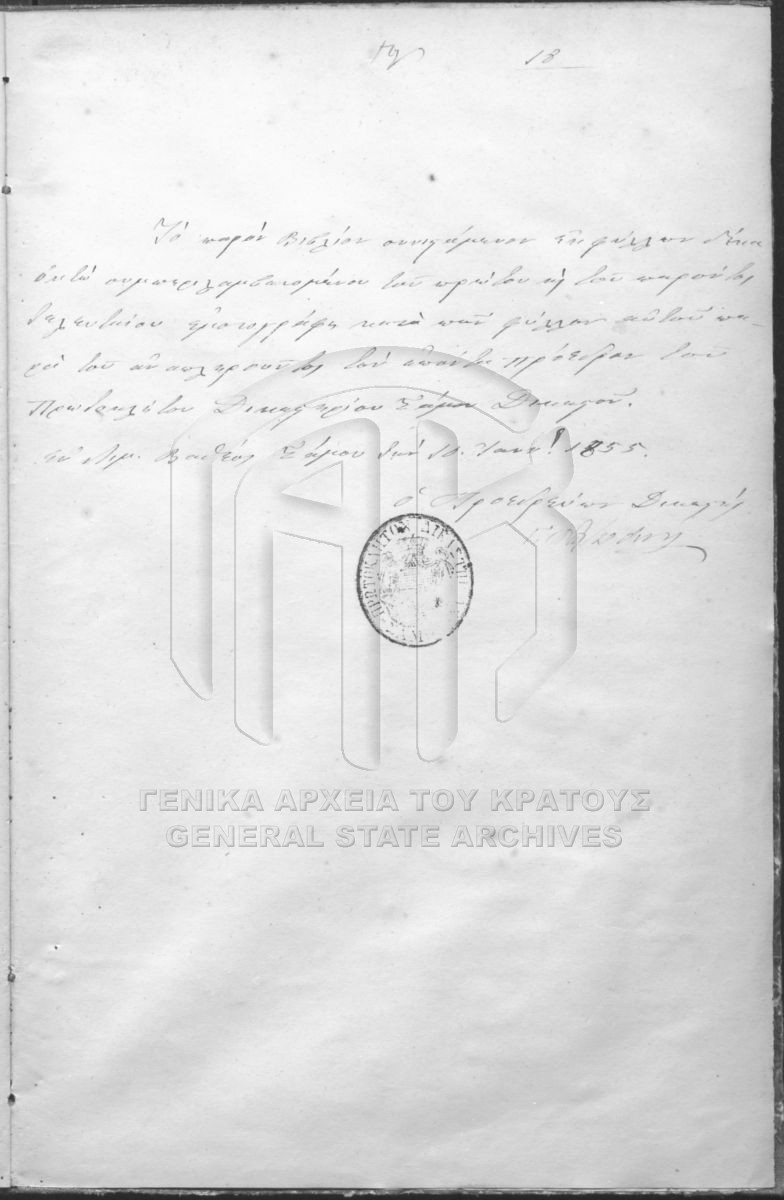 18
Τὸ παρὸν Βιβλίον συνιστάμενον ἐκ φύλλων δέκα
ὀκτὼ συμπεριλαμβανομένου τοῦ πρώτου καὶ τοῦ παρόντος
τελευταίου ἐμονογράφη κατὰ πᾶν φύλλον αὐτοῦ πα-
ρὰ τοῦ ἀναπληροῦντος τὸν ἀπόντα Πρόεδρον τοῦ
Πρωτοκλήτου Δικαστηρίου Σάμου Δικαστοῦ.
Ἐν Λιμ. Βαθέος Σάμου τὴν 10. Ἰανρ! 1855.
ὁ Προεδρεύων Δικαστής
ΠΡΩΤΟΚΛΗΤΟΝ ΔΙΚΑΣΤΗ
ΓΕΝΙΚΑ ΑΡΧΕΙΑ ΤΟΥ ΚΡΑΤΟΥΣ
GENERAL STATE ARCHIVES